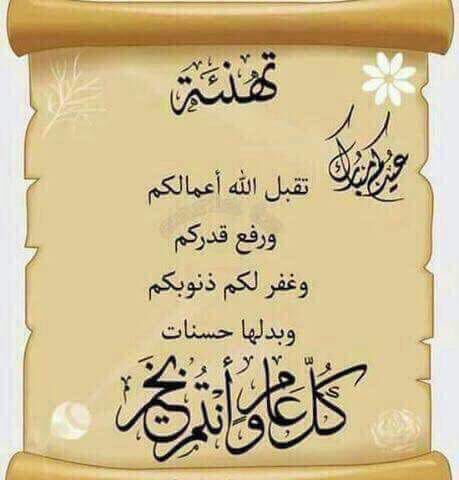 تهنئة
عيدكم مبارك
تقبل الله أعمالكم
ورفع قدركم
وغفر لكم ذنوبكم
وبدلها حسنات
كُلّ عَام وأَنتُم بخَير